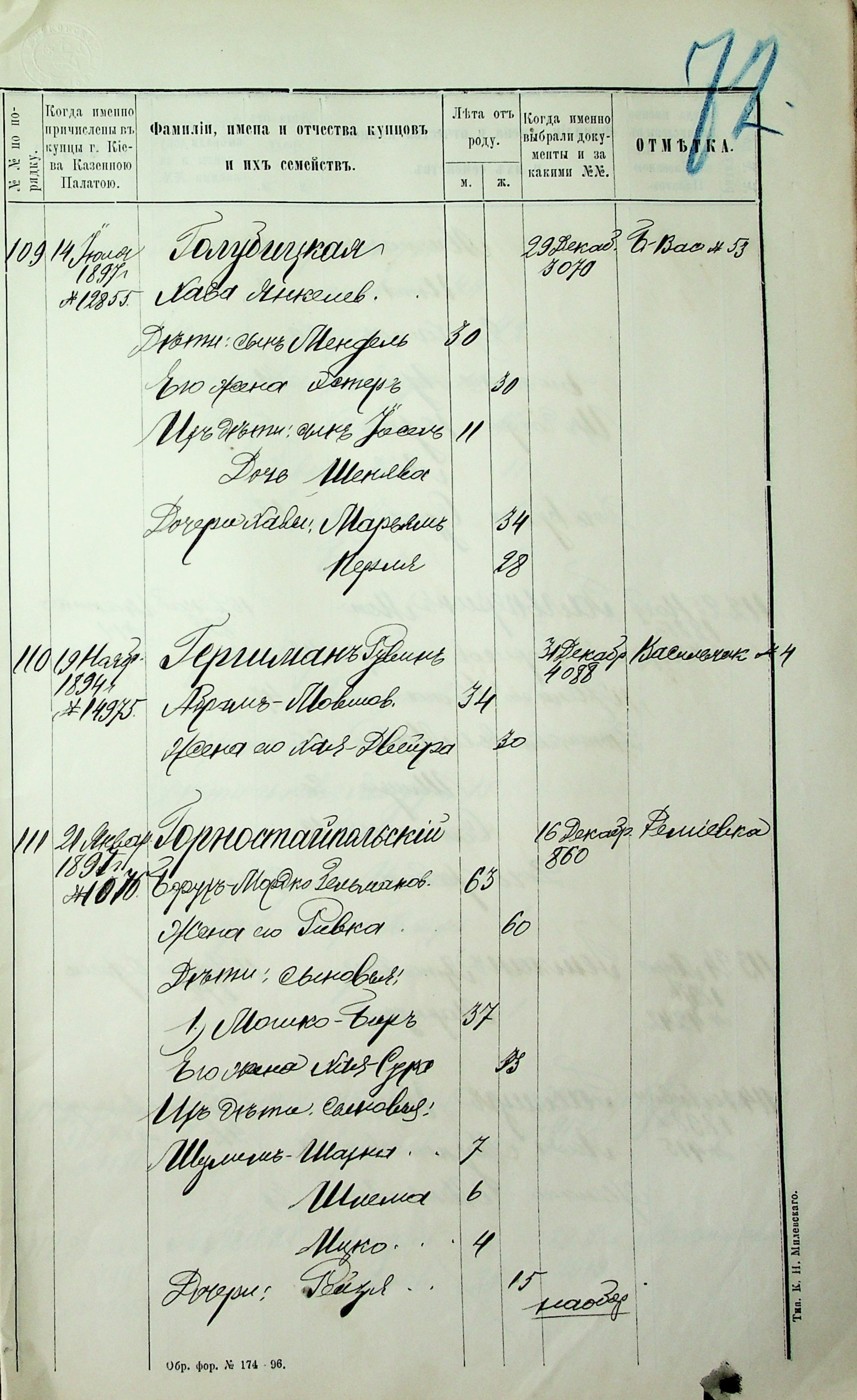 72.
№№ по порядку.
Когда именно причислены въ купцы г. Кіева Казенною Палатою.
Фамиліи, имена и отчества купцовъ и ихъ семействъ.
Лѣта отъ роду.
м.
ж.
Когда именно выбрали документы и за какими №№.
ОТМѢТКА.
109 14 Іюля Голубицкая 29 Декаб. Б-Вас № 53
1897 г. 3070
№ 12855. Хава Янкелев.
Дѣти: сынъ Мендель 30
Его жена Эстеръ 30
Ихъ дѣти: сынъ Іосель 11
Дочь
Дочери Хавы: Марьямъ 34
Перля 28
110 19 Ноябр. Гергиманъ Рувинъ 31 Декабр. № 4
1894 г. 4088
№ 14975. Абрамъ-Мовшов. 34
Жена его Хая-Двейра 30
111 21 Январ. Горностайпольскій 16 Декабр.
1897 г. 860
Борухъ-Мордко Зельманов. 63
Жена его Ривка 60
Дѣти: сыновья:
1) Мошко-Беръ 37
Его жена Хая-Сура
Ихъ дѣти: сыновья:
7
Шлема 6
Ицко. 4
Дочери: Рейзя 15
наобор.
Обр. фор. № 174 - 96.
Тип. К. Н. Милевскаго.